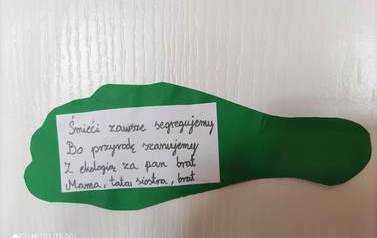 Śmieci zawsze segregujemy
Bo przyrodę szanujemy
Z ekologią za pan brat
Mama, tata, siostra, brat